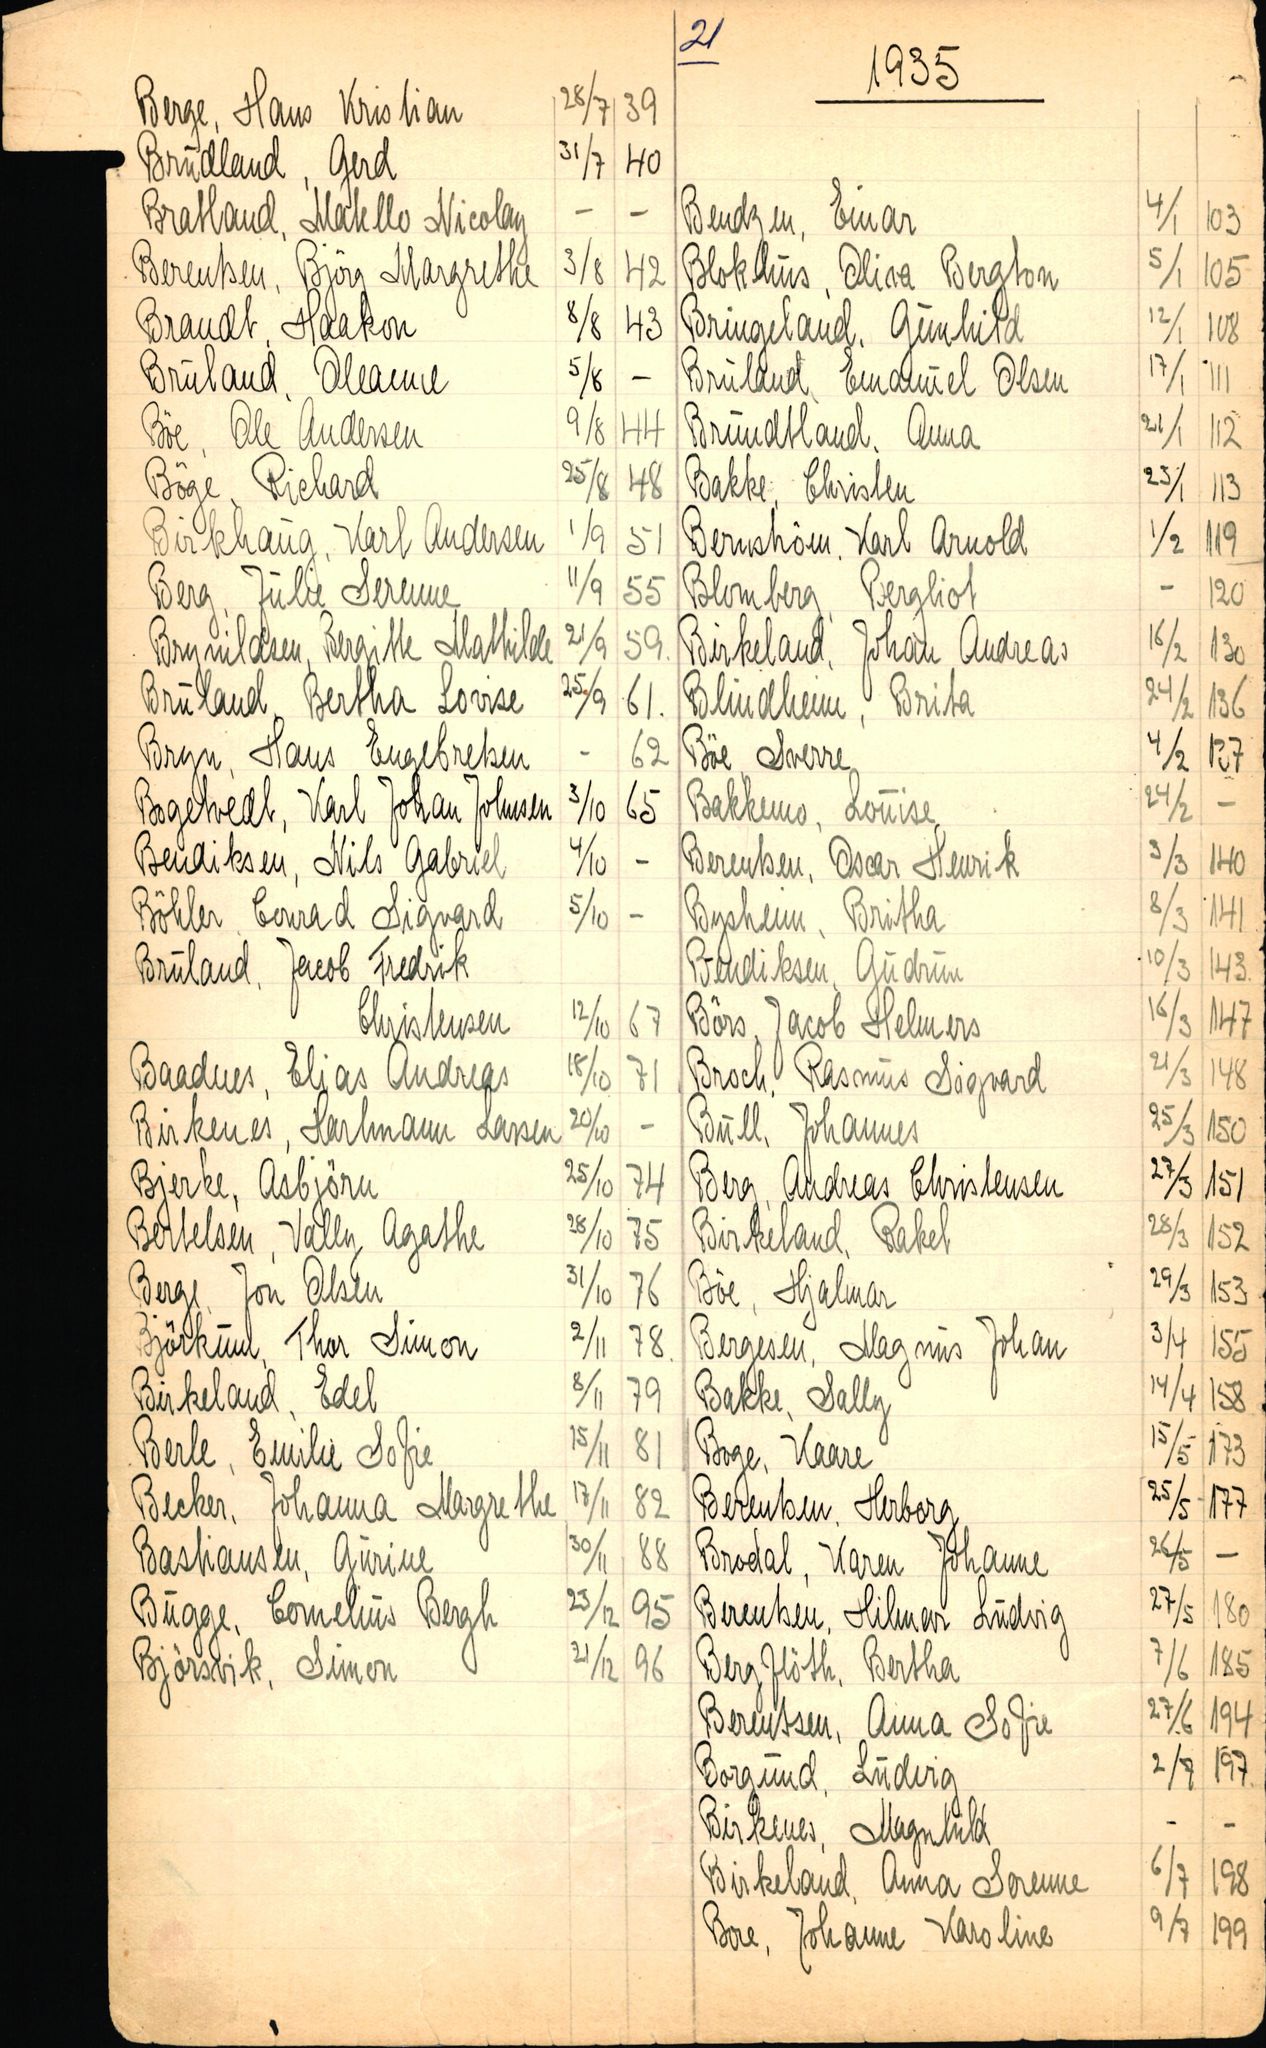 21
Berge, Hans Kristian 28/7 39
Brudland, Gerd 31/7 40
Bratland, Nicolay - -
Berentsen, Björg Margrethe 3/8 42
Brandt, Haakon 8/8 43
Bruland, Oleanne 5/8 -
Böe, Ole Andersen 9/8 44
Böge, Richard 25/8 48
Birkhaug, Karl Andersen 1/9 51
Berg, Julie Serenne 11/9 55
Brynildsen, Bergitte Mathilde 21/9 59.
Bruland, Bertha Lovise 25/9 61.
Bryn, Hans Engebretsen - 62
Bogetvedt, Karl Johan Johnsen 3/10 65
Bendiksen, Nils Gabriel 4/10 -
Böhler, Conrad Sigvard 5/10 -
Bruland, Jacob Fredrik
Christensen 12/10 67
Baadnes, Elias Andreas 18/10 71
Birkenes, Hartmann Larsen 20/10 -
Bjerke, Asbjörn 25/10 74
Bertelsen, Vally Agathe 28/10 75
Berge, Jon Olsen 31/10 76
Björkum, Thor Simon 2/11 78.
Birkeland, Edel 8/11 79
Berle, Emilie Sofie 15/11 81
Becker, Johanna Margrethe 17/11 82
Bastiansen, Gurine 30/11 88
Bugge, Cornelius Bergh 23/12 95
Björsvik, Simon 21/12 96
1935
Bendzen, Einar 4/1 103
Blokhus, Oliva Bergton 5/1 105
Bringeland, Gunhild 12/1 108
Bruland, Emanuel Olsen 17/1 111
Brundtland, Anna 21/1 112
Bakke, Christen 23/1 113
Bernström, Karl Arnold 1/2 119
Blomberg, Bergliot - 120
Birkeland, Johan Andreas 16/2 130
Blindheim, Brita 24/2 136
Böe, Sverre 4/2 137
Bakkemo, Louise 24/2 -
Berentsen, Oscar Henrik 3/3 140
Bysheim, Britha 8/3 141
Bendiksen, Gudrun 10/3 143.
Börs, Jacob Helmers 16/3 147
Broch, Rasmus Sigvard 21/3 148
Bull, Johannes 25/3 150
Berg, Andreas Christensen 27/3 151
Birkeland, Rakel 28/3 152
Böe, Hjalmar 29/3 153
Bergesen, Magnus Johan 3/4 155
Bakke, Sally 14/4 158
Boge, Kaare 15/5 173
Berentsen, Herborg 25/5 177
Brodal, Karen Johanne 26/5 -
Berentsen, Hilmar Ludvig 27/5 180
Bergflöth, Bertha 7/6 185
Berentsen, Anna Sofie 27/6 194
Borgund, Ludvig 2/7 197
Birkenes, Magnhild - -
Birkeland, Anna Serenne 6/7 198
Bore, Johanne Karoline 9/7 199